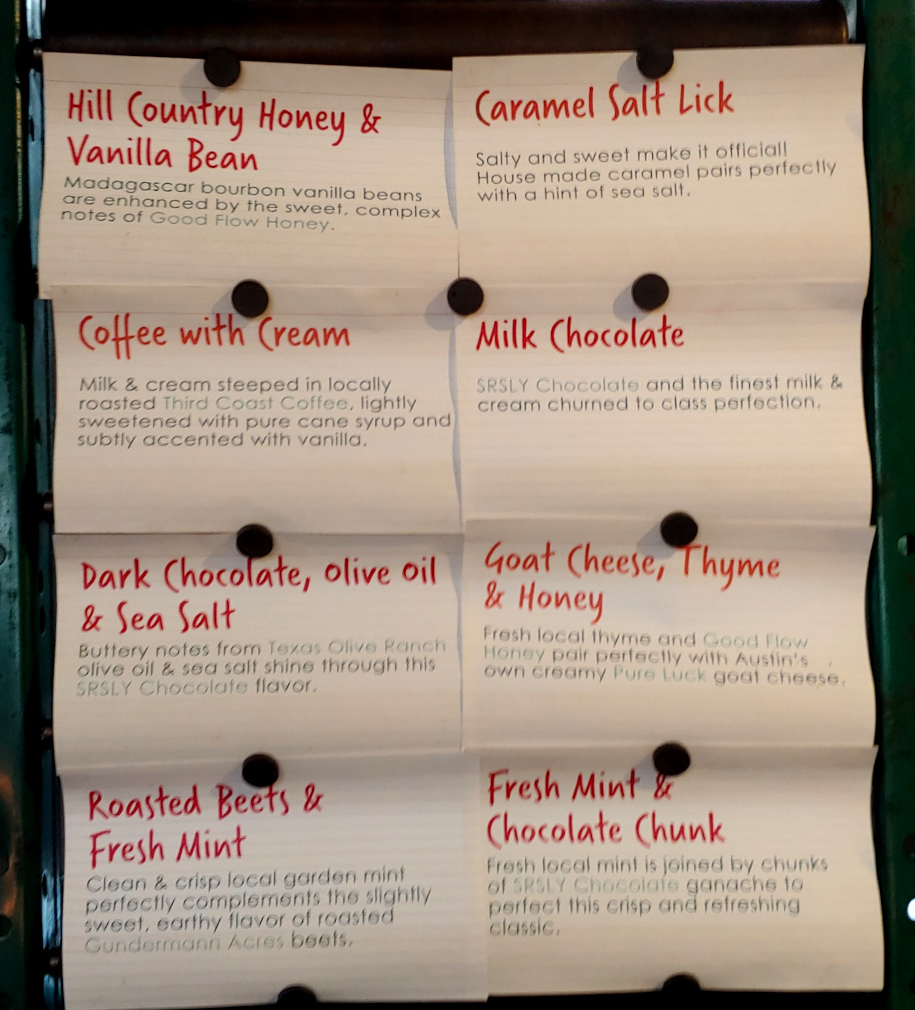 Hill Country Honey &
Vanilla Bean
Madagascar bourbon vanilla beans
are enhanced by the sweet, complex
notes of Good Flow Honey.
Caramel Salt Lick
Salty and sweet make it officiall
House made caramel pairs perfectly
with a hint of sea salt.
Coffee with Cream
Milk & cream steeped in locally
roasted Third Coast Coffee, lightly
sweetened with pure cane syrup and
subtly accented with vanilla.
Milk Chocolate
SRSLY Chocolate and the finest milk &
cream churned to class perfection.
Dark Chocolate, Olive Oil
& Sea Salt
Buttery notes from Texas Olive Ranch
olive oil & sea salt shine through this
SRSLY Chocolate flavor.
Goat Cheese, Thyme
& Honey
Fresh local thyme and Good Flow
Honey pair perfectly with Austin's
own creamy Pure Luck goat cheese.
Roasted Beets &
Fresh Mint
Clean & crisp local garden mint
perfectly complements the slightly
sweet, earthy flavor of roasted
Gundermann Acres beets.
Fresh Mint &
Chocolate Chunk
Fresh local mint is joined by chunks
of SRSLY Chocolate ganache to
perfect this crisp and refreshing
classic.